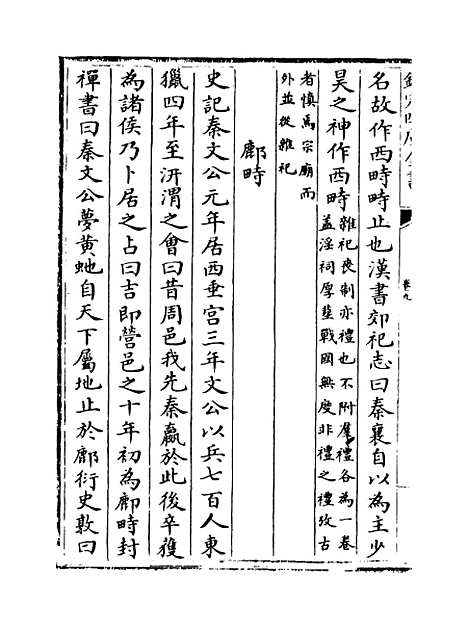 欽定四庫全書
卷九
名故作西畤畤止也漢書郊祀志曰秦襄自以為主少
昊之神作西畤
雜祀喪制亦禮也不附羣禮各為一卷
蓋淫祠厚塟戰國無度非禮之禮攷古
者慎焉宗廟而
外並從雜祀
鄜畤
史記秦文公元年居西垂宫三年文公以兵七百人東
獵四年至汧渭之會曰昔周邑我先秦嬴於此後卒獲
為諸侯乃卜居之占曰吉即營邑之十年初為鄜畤封
禪書曰秦文公夢黄虵自天下屬地止於鄜衍史敦曰